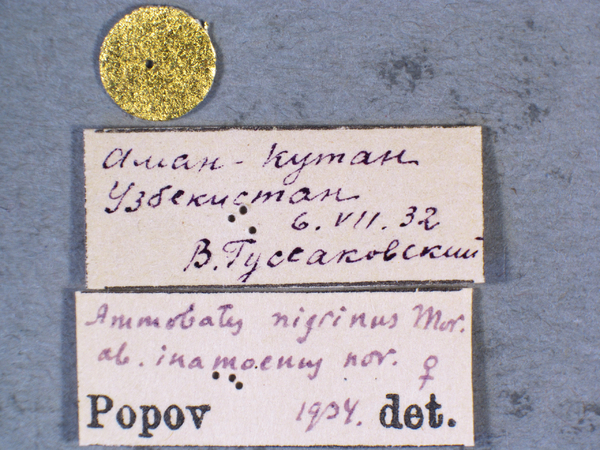 Аман-Кутан
Узбекистан
6. VII. 32
В. Гуссаковский
Ammobates nigrinus Mor.
ab. inamoenus nov. ♀
Popov 1934. det.